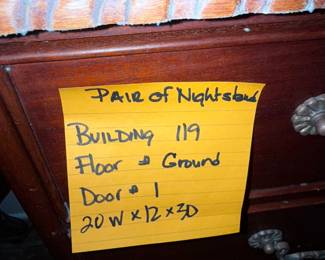 Pair of Nightstand
Building 119
Floor # Ground
Door # 1
20W x 12 x 30